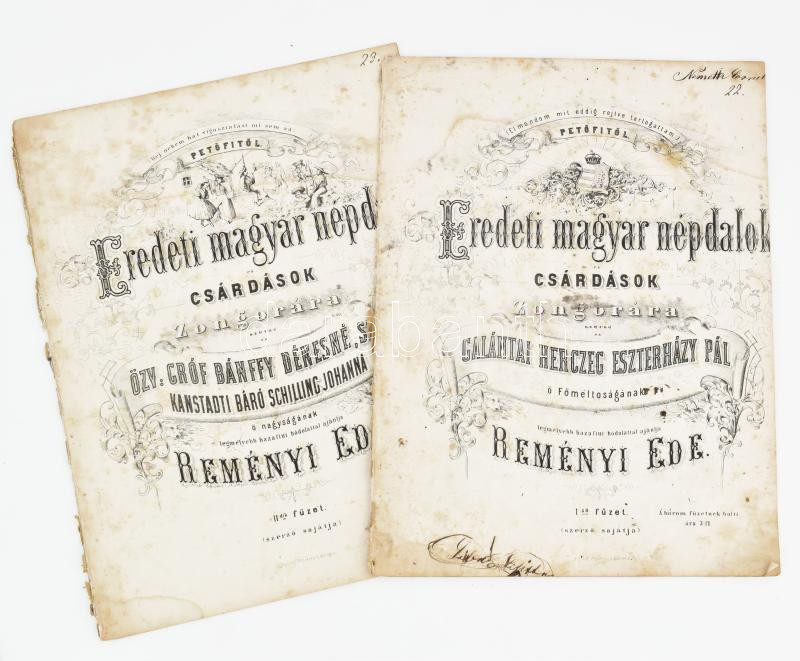 23.
Hej nekem hat vigasztalást mi sem ád
PETŐFITŐL
Eredeti magyar népd
és
CSÁRDÁSOK
Zongorára
szerzé
ÖZV: GRÓF BÁNFFY DÉNESNÉ, S
KANSTADTI BÁRÓ SCHILLING JOHANNA
ő nagyságának
legmélyebb hazafini hódolattal ajánlja
REMÉNYI ED
IIdik füzet.
(szerző sajátja)
Németh
22.
(Elmondom mit eddig rejtve tartogattam)
PETŐFITŐL
Eredeti magyar népdalok
és
CSÁRDÁSOK
Zongorára
szerzé
GALÁNTAI HERCZEG ESZTERHÁZY PÁL
ő Főmeltoságának
legmélyebb hazafini hódolattal ajánlja
REMÉNYI EDE.
Iső füzet.
A három füzetnek bolti
ára 3 ft
(szerző sajátja)